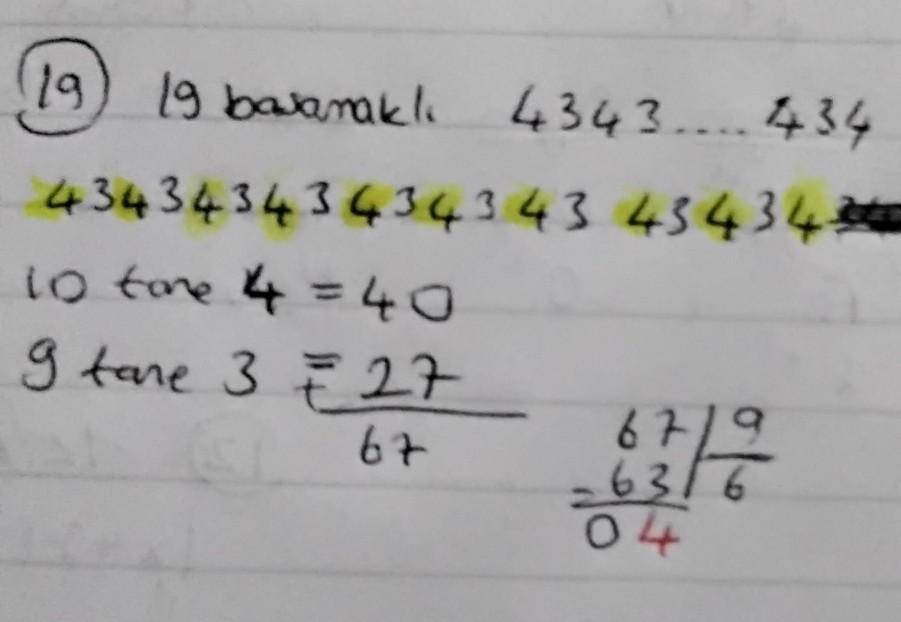 19 19 basamaklı 4343....434
4343434343434343434
10 tane 4 = 40
9 tane 3 = + 27
67
67 9
- 63 6
04